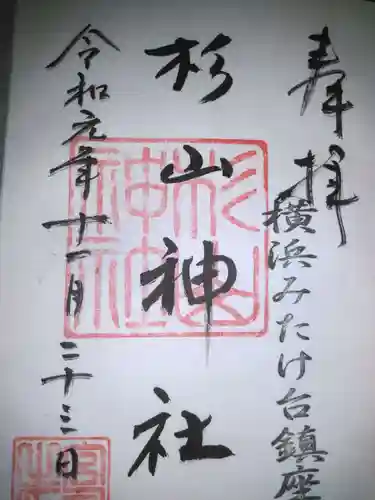 奉拝
横浜みたけ台鎮座
杉山神社
令和元年十一月二十三日
杉山神社